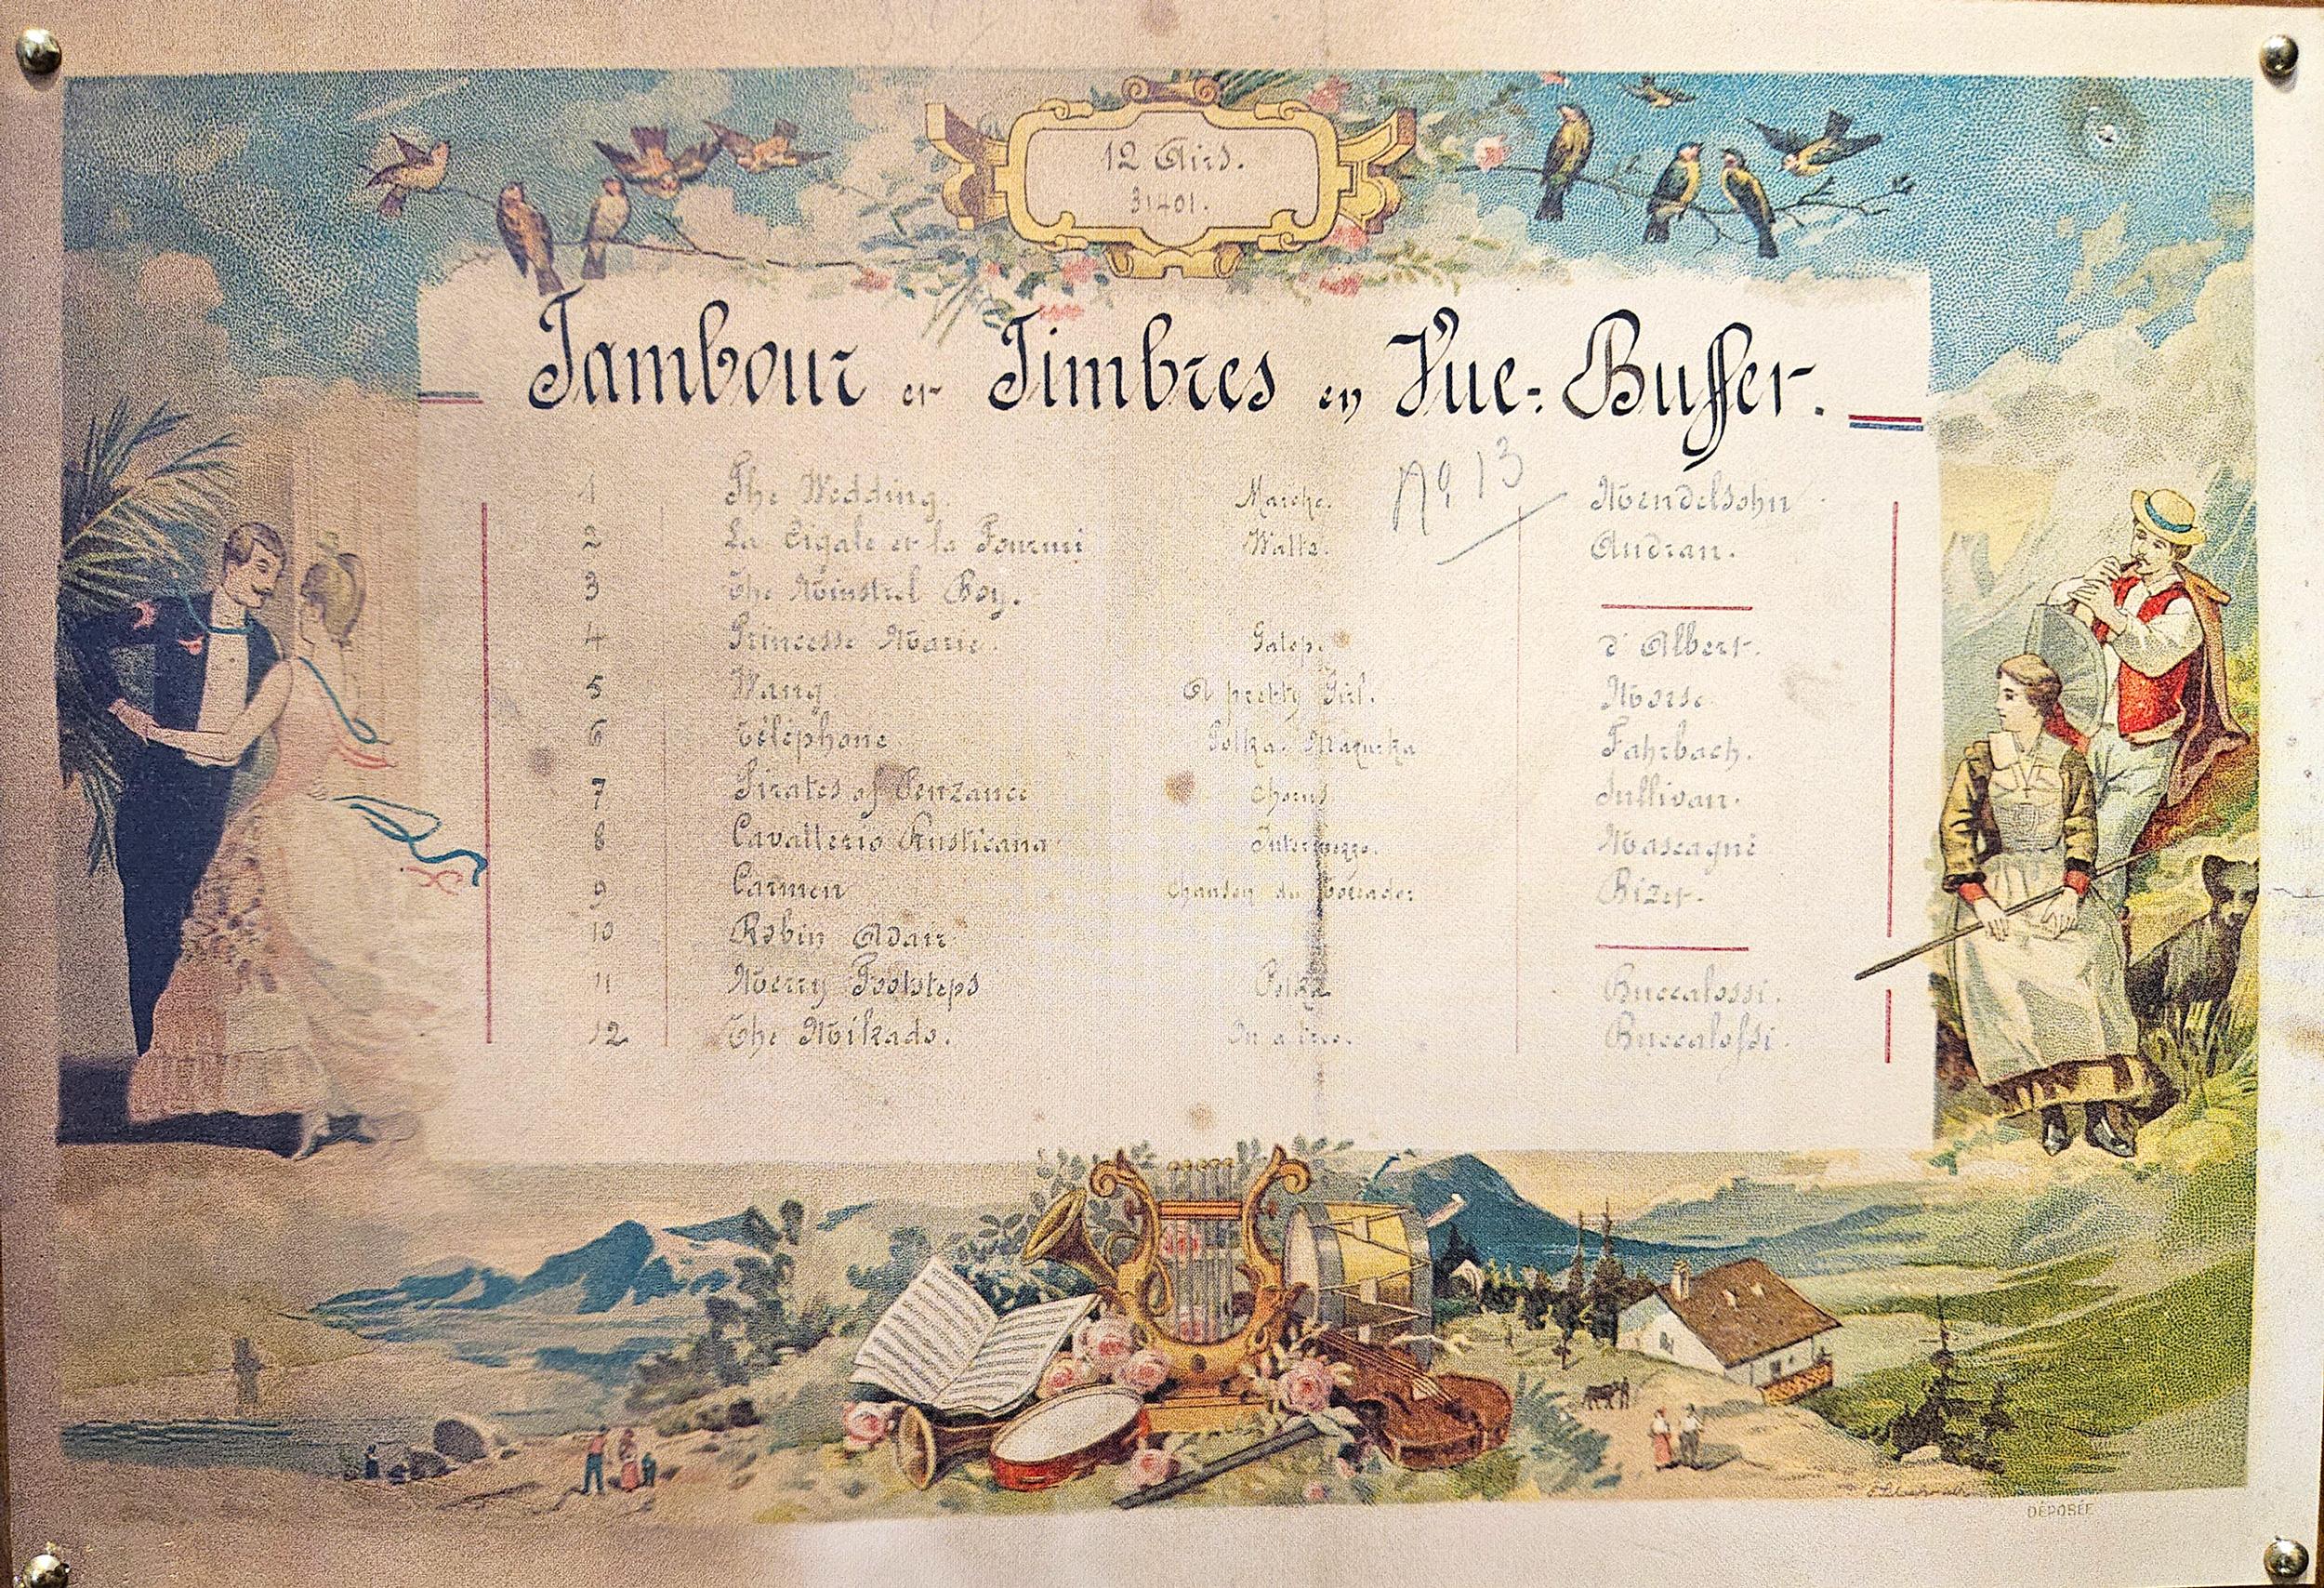 12 Airs.
31401.
Tambour et Timbres en Vue-Buffet.
No 13
1 The Wedding. Marche. Mendelsohn
2 La Cigale et la Fourmi Waltz. Audran.
3 The Minstrel Boy.
4 Princesse Marie. Galop. d'Albert.
5 Wang A pretty Girl. Morse
6 Téléphone Polka-Mazurka Fahrbach.
7 Pirates of Penzance Chorus Sullivan.
8 Cavalleria Rusticana Intermezzo. Mascagni
9 Carmen Chanson du Toreador Bizet.
10 Robin Adair
11 Merry Footsteps Polka Buccalossi.
12 The Mikado. Buccalossi.
DÉPOSÉE